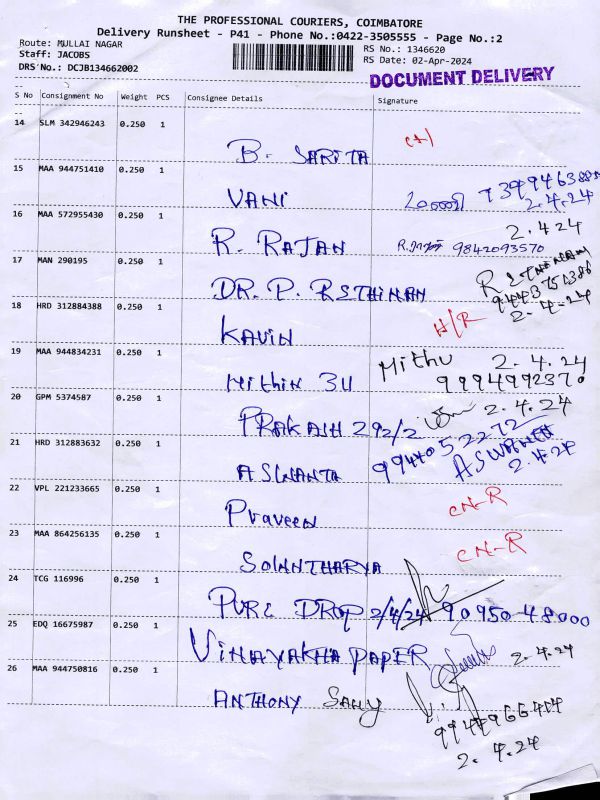 THE PROFESSIONAL COURIERS, COIMBATORE
Delivery Runsheet - P41 - Phone No.:0422-3505555 - Page No.:2
Route: MULLAI NAGAR RS No.: 1346620
Staff: JACOBS RS Date: 02-Apr-2024
DRS No.: DCJB134662002
DOCUMENT DELIVERY
S No Consignment No Weight PCS Consignee Details Signature
14 SLM 342946243 0.250 1
B. SARITA
15 MAA 944751410 0.250 1
VANI 2.4.24
16 MAA 572955430 0.250 1 2.4.24
R. RAJAN 9842093570
17 MAN 290195 0.250 1
DR. P. 2-4-24
18 HRD 312884388 0.250 1
KAVIN H/R
19 MAA 944834231 0.250 1 Mithu 2.4.24
Mithin 3U
20 GPM 5374587 0.250 1 2.4.24
PRAKASH 292/2
21 HRD 312883632 0.250 1 9944052272
2.4.24
22 VPL 221233665 0.250 1 CN-R
Praveen
23 MAA 864256135 0.250 1 CN-R
24 TCG 116996 0.250 1
PURE DROP 2/4/24 90950 48000
25 EDQ 16675987 0.250 1
VINAYAKHA PAPER 2.4.24
26 MAA 944750816 0.250 1
ANTHONY
2.4.24